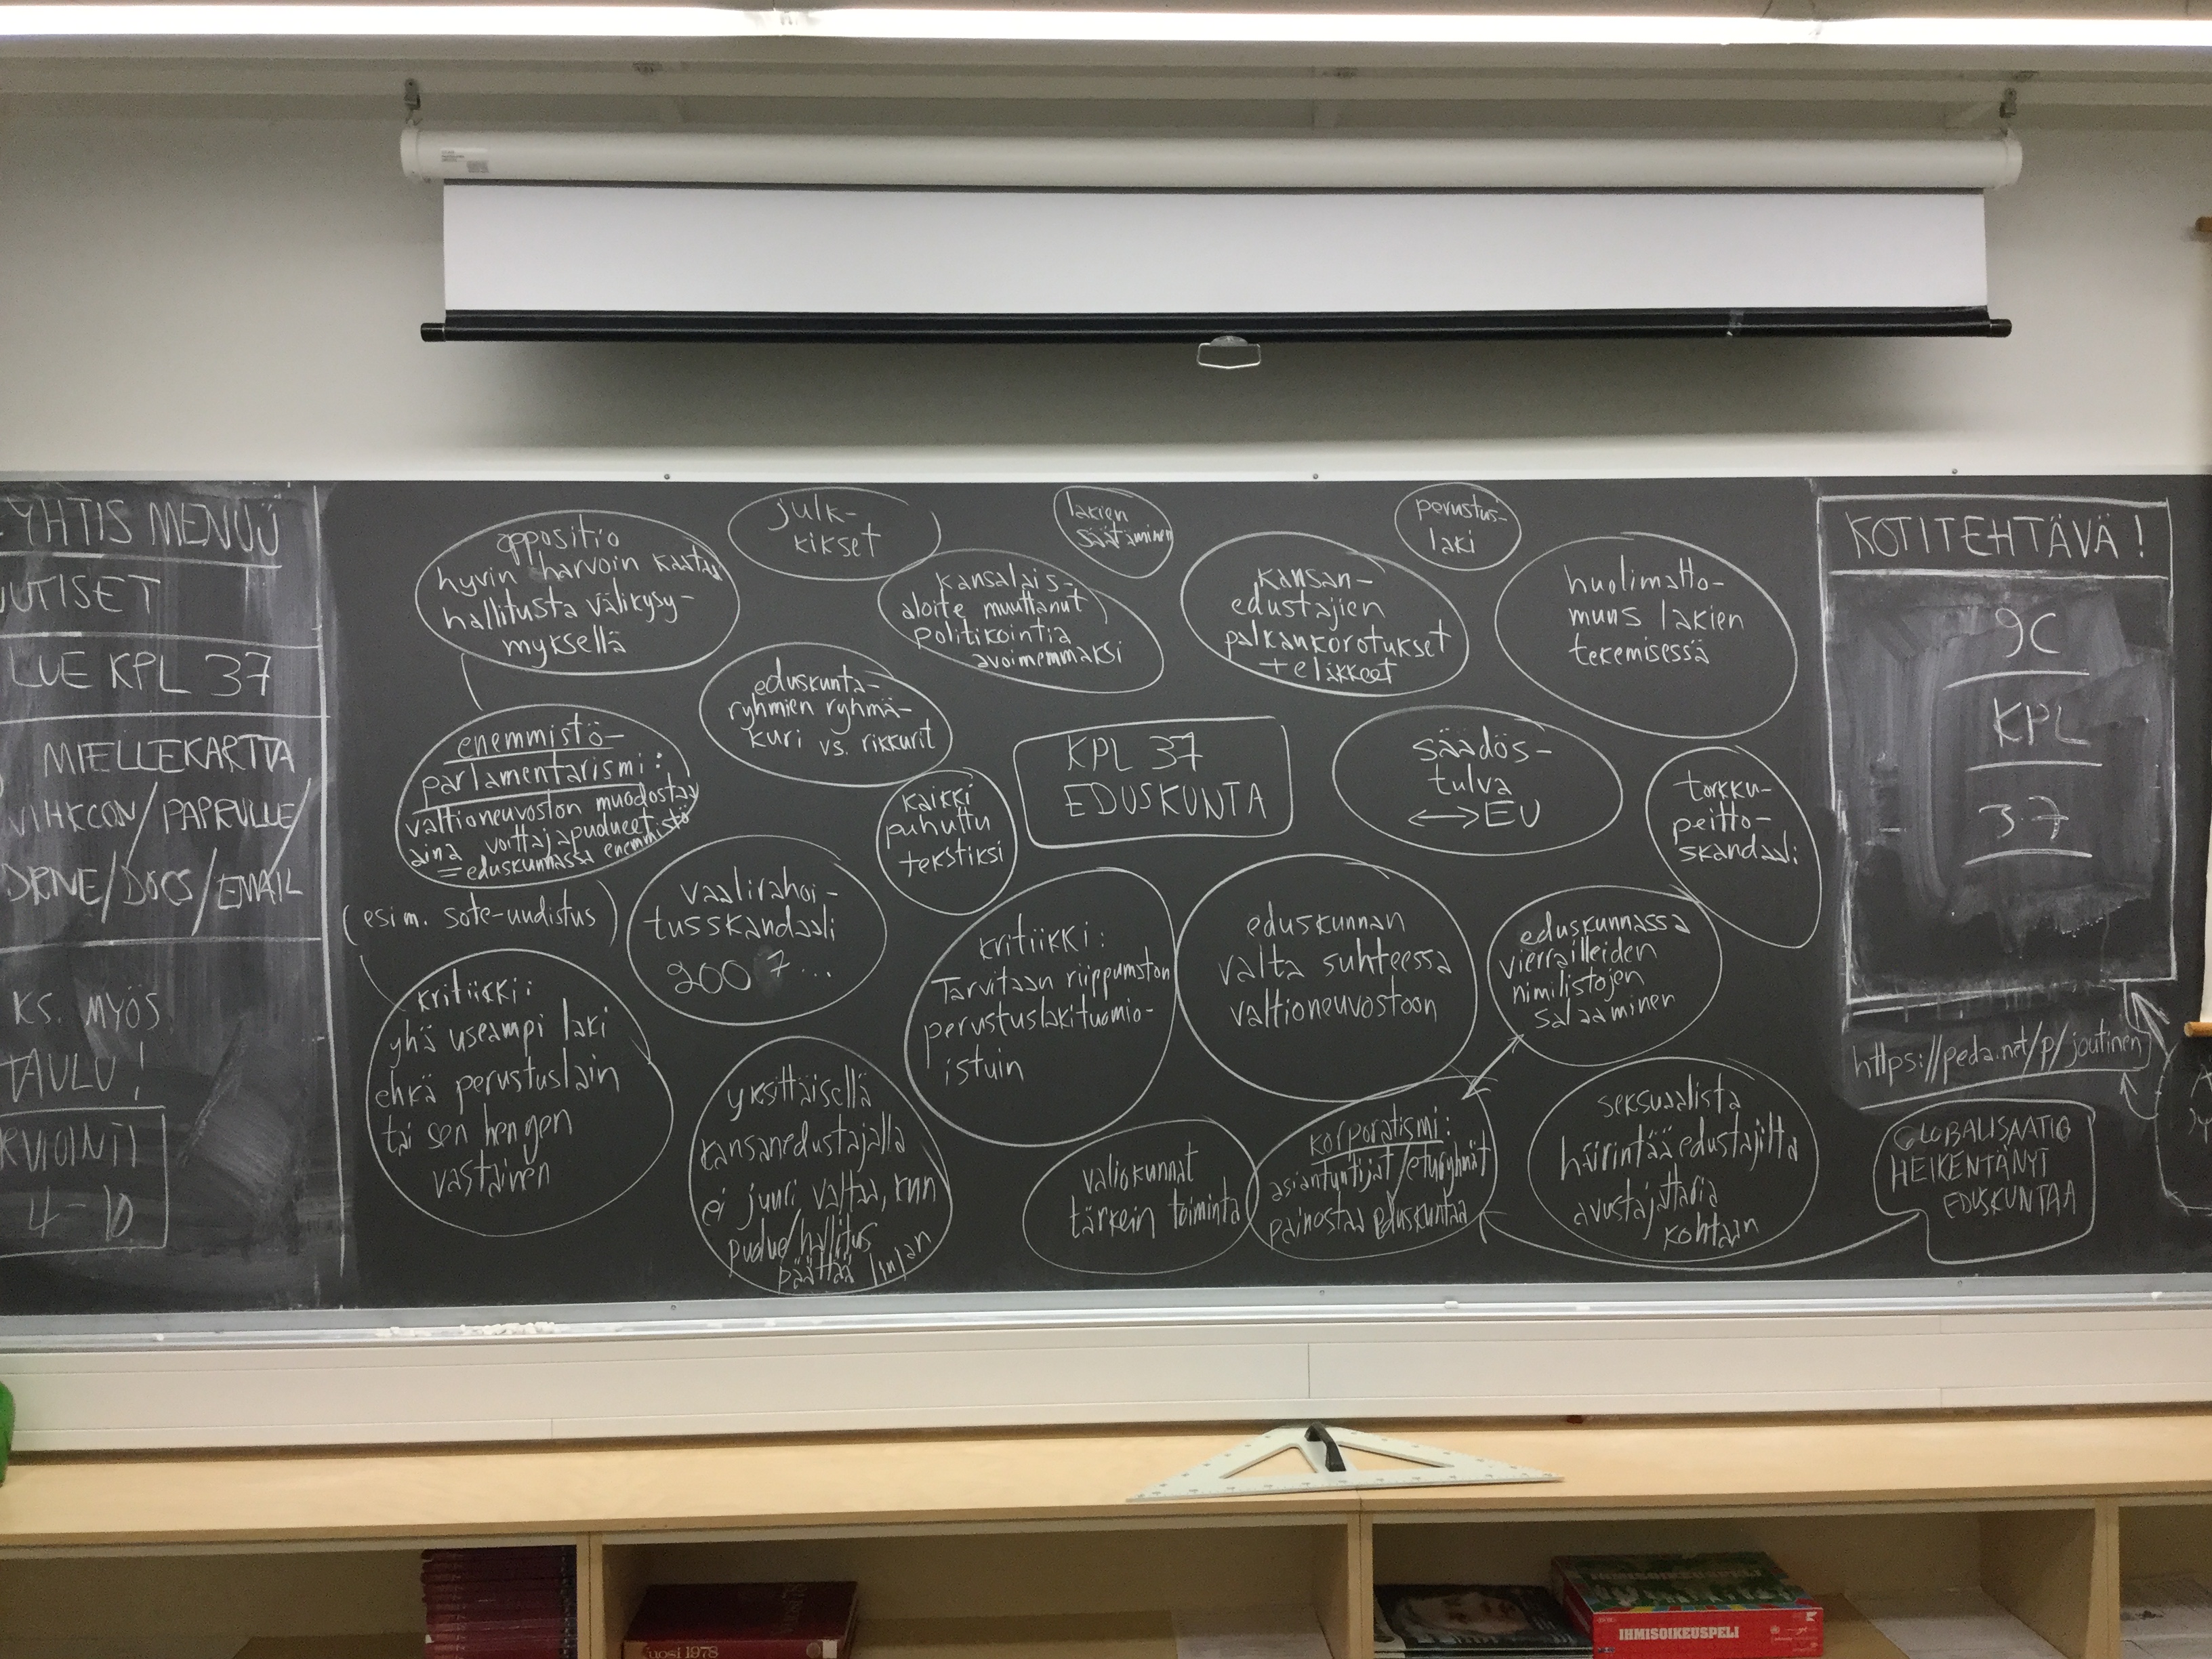 YHTIS MENUU
UUTISET
LUE KPL 37
MIELLEKARTTA
VIHKOON/PAPRULLE/
DRIVE/DOCS/EMAIL
KS. MYÖS
TAULU!
ARVIOINTI
4-10
oppositio
hyvin harvoin kaataa
hallitusta välikysy-
myksellä
julk-
kikset
lakien
säätäminen
perustus-
laki
kansalais-
aloite muuttanut
politikointia
avoimemmaksi
kansan-
edustajien
palkankorotukset
+ eläkkeet
huolimatto-
muus lakien
tekemisessä
eduskunta-
ryhmien ryhmä-
kuri vs. rikkurit
enemmistö-
parlamentarismi:
valtioneuvoston muodostaa
aina voittajapuolueet
= eduskunnassa enemmistö
kaikki
puhuttu
tekstiksi
KPL 37
EDUSKUNTA
säädös-
tulva
↔ EU
torkku-
peitto-
skandaali
(esim. sote-uudistus)
vaalirahoi-
tusskandaali
2007...
kritiikki:
Tarvitaan riippumaton
perustuslakituomio-
istuin
eduskunnan
valta suhteessa
valtioneuvostoon
eduskunnassa
vierailleiden
nimilistojen
salaaminen
kritiikki:
yhä useampi laki
ehkä perustuslain
tai sen hengen
vastainen
yksittäisellä
kansanedustajalla
ei juuri valtaa, kun
puolue/hallitus
päättää linjan
valiokunnat
tärkein toiminta
korporatismi:
asiantuntijat/eturyhmät
painostaa eduskuntaa
seksuaalista
häirintää edustajilta
avustajattaria
kohtaan
KOTITEHTÄVÄ!
9C
KPL
37
https://peda.net/p/joutinen
GLOBALISAATIO
HEIKENTÄNYT
EDUSKUNTAA
uosi 1978
IHMISOIKEUSPELI
IHMISOIKEUSPELI